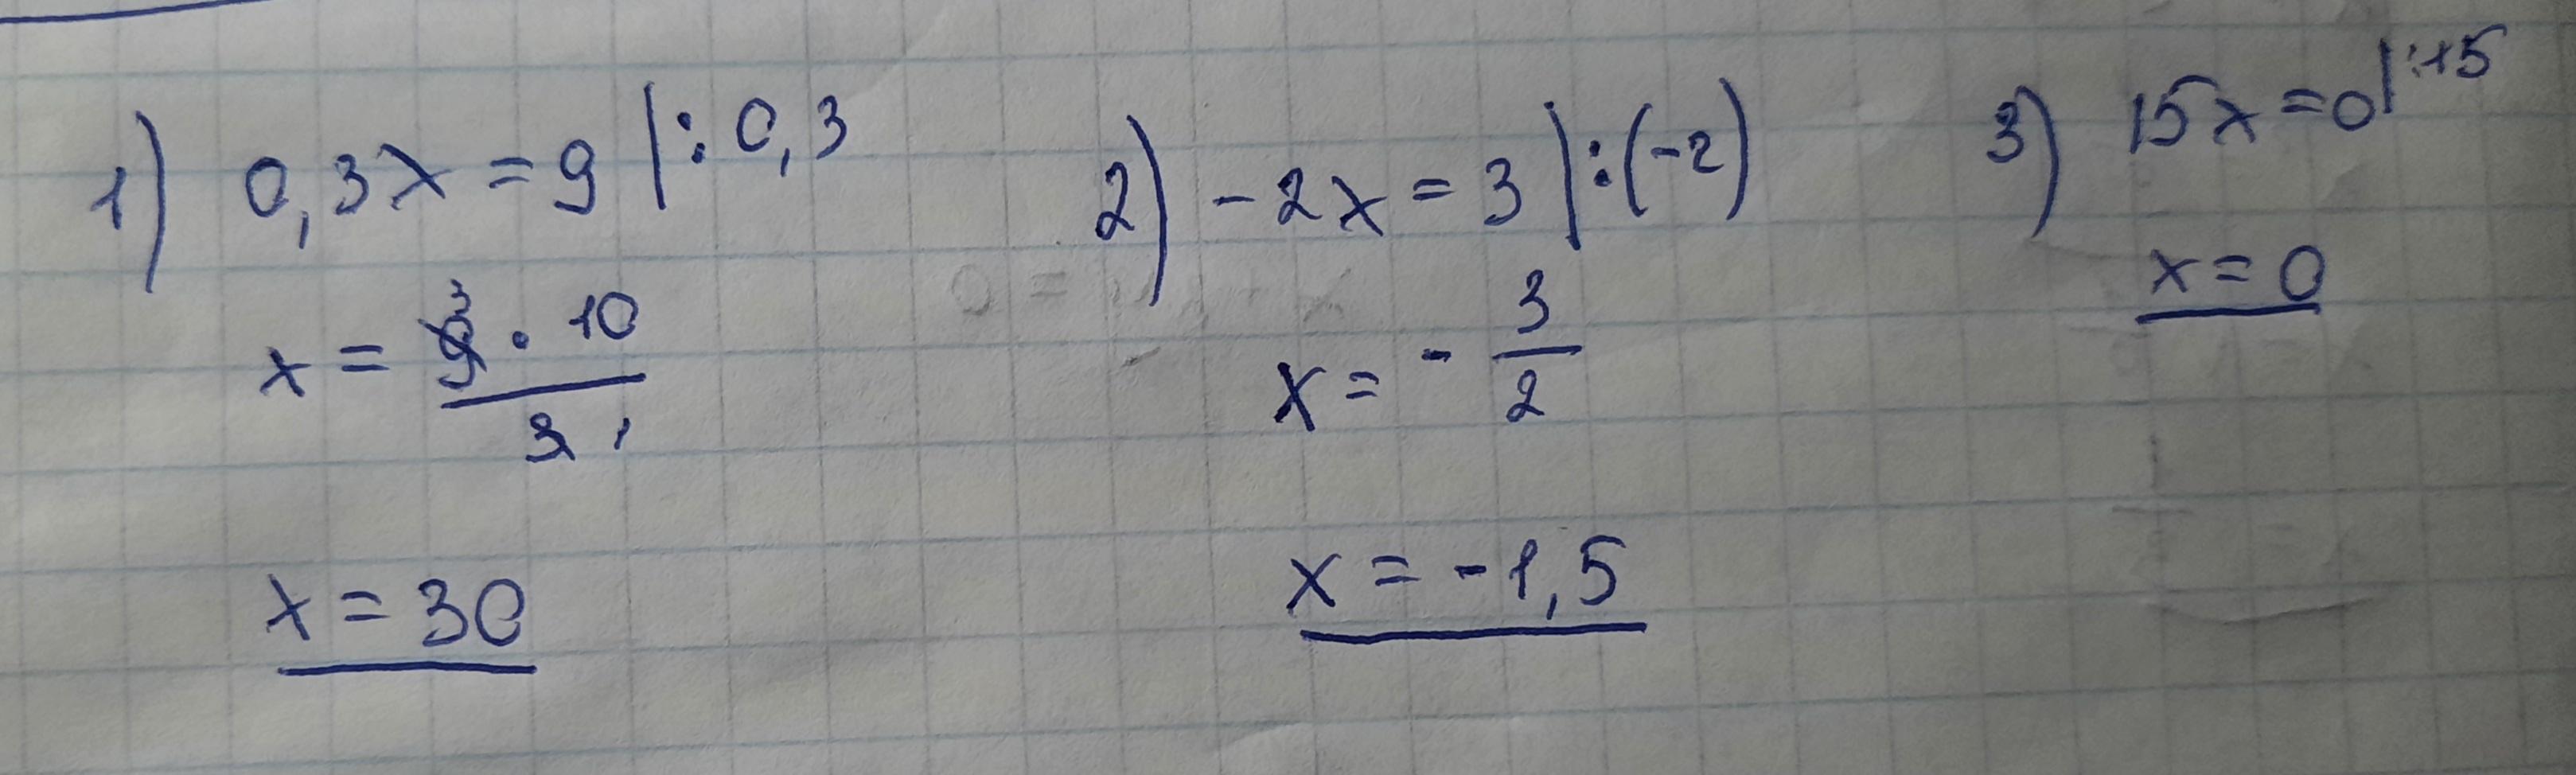 1) 0,3x = 9 | : 0,3
x = 9 3 · 10 / 3 1
x = 30
2) -2x = 3 | : (-2)
x = - 3/2
x = -1,5
3) 15x = 0 | : 15
x = 0